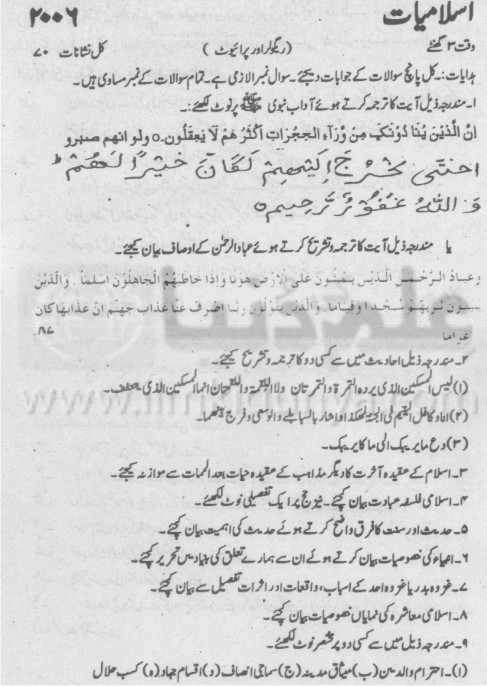 اسلامیات ۲۰۰۶
وقت ۳ گھنٹے (ریگولر اور پرائیویٹ) کل نشانات ۷۰
ہدایات:۔ کل پانچ سوالات کے جوابات دیجئے۔ سوال نمبر ۱ لازمی ہے۔ تمام سوالات کے نمبر مساوی ہیں۔
۱۔ مندرجہ ذیل آیت کا ترجمہ کرتے ہوئے آداب نبوی ﷺ پر نوٹ لکھئے:
ان الذین ینادونک من ورآء الحجرات اکثرهم لا یعقلون۝ ولو انهم صبرو
احتی تخرج الیهم لکان خیرا لهم ط
و الله غفور رحیم۝
یا مندرجہ ذیل آیت کا ترجمہ و تشریح کرتے ہوئے عباد الرحمٰن کے اوصاف بیان کیجئے۔
وعباد الرحمن الذین یمشون علی الارض هونا واذا خاطبهم الجاهلون قالوا سلاما۔ والذین
یبیتون لربهم سجدا وقیاما۔ والذین یقولون ربنا اصرف عنا عذاب جهنم ان عذابها کان
غراما ۸۷
علم کی دنیا
www.ilmkidunya.com
۲۔ مندرجہ ذیل احادیث میں سے کسی دو کا ترجمہ و تشریح کیجئے۔
(۱) لیس المسکین الذی یردہ التمرة والتمرتان ولا اللقمة واللقمتان انما المسکین الذی یتعفف۔
(۲) انا و کافل الیتیم فی الجنة هکذا و اشار بالسبابة والوسطی و فرج بینهما۔
(۳) دع ما یریبک الی ما لا یریبک۔
۳۔ اسلام کے عقیدہ آخرت کا دیگر مذاہب کے عقیدہ حیات بعد الممات سے موازنہ کیجئے۔
۴۔ اسلامی فلسفہ عبادت بیان کیجئے نیز حج پر ایک تفصیلی نوٹ لکھئے۔
۵۔ حدیث اور سنت کا فرق واضح کرتے ہوئے حدیث کی اہمیت بیان کیجئے۔
۶۔ انبیاء کی خصوصیات بیان کرتے ہوئے ان سے ہمارے تعلق کی بنیادیں تحریر کیجئے۔
۷۔ غزوہ بدر یا غزوہ احد کے اسباب، واقعات اور اثرات تفصیل سے بیان کیجئے۔
۸۔ اسلامی معاشرہ کی نمایاں خصوصیات بیان کیجئے۔
۹۔ مندرجہ ذیل میں سے کسی دو پر مختصر نوٹ لکھئے۔
(ا)۔ احترام والدین (ب) میثاق مدینہ (ج) سماجی انصاف (د) اقسام جہاد (ہ) کسب حلال